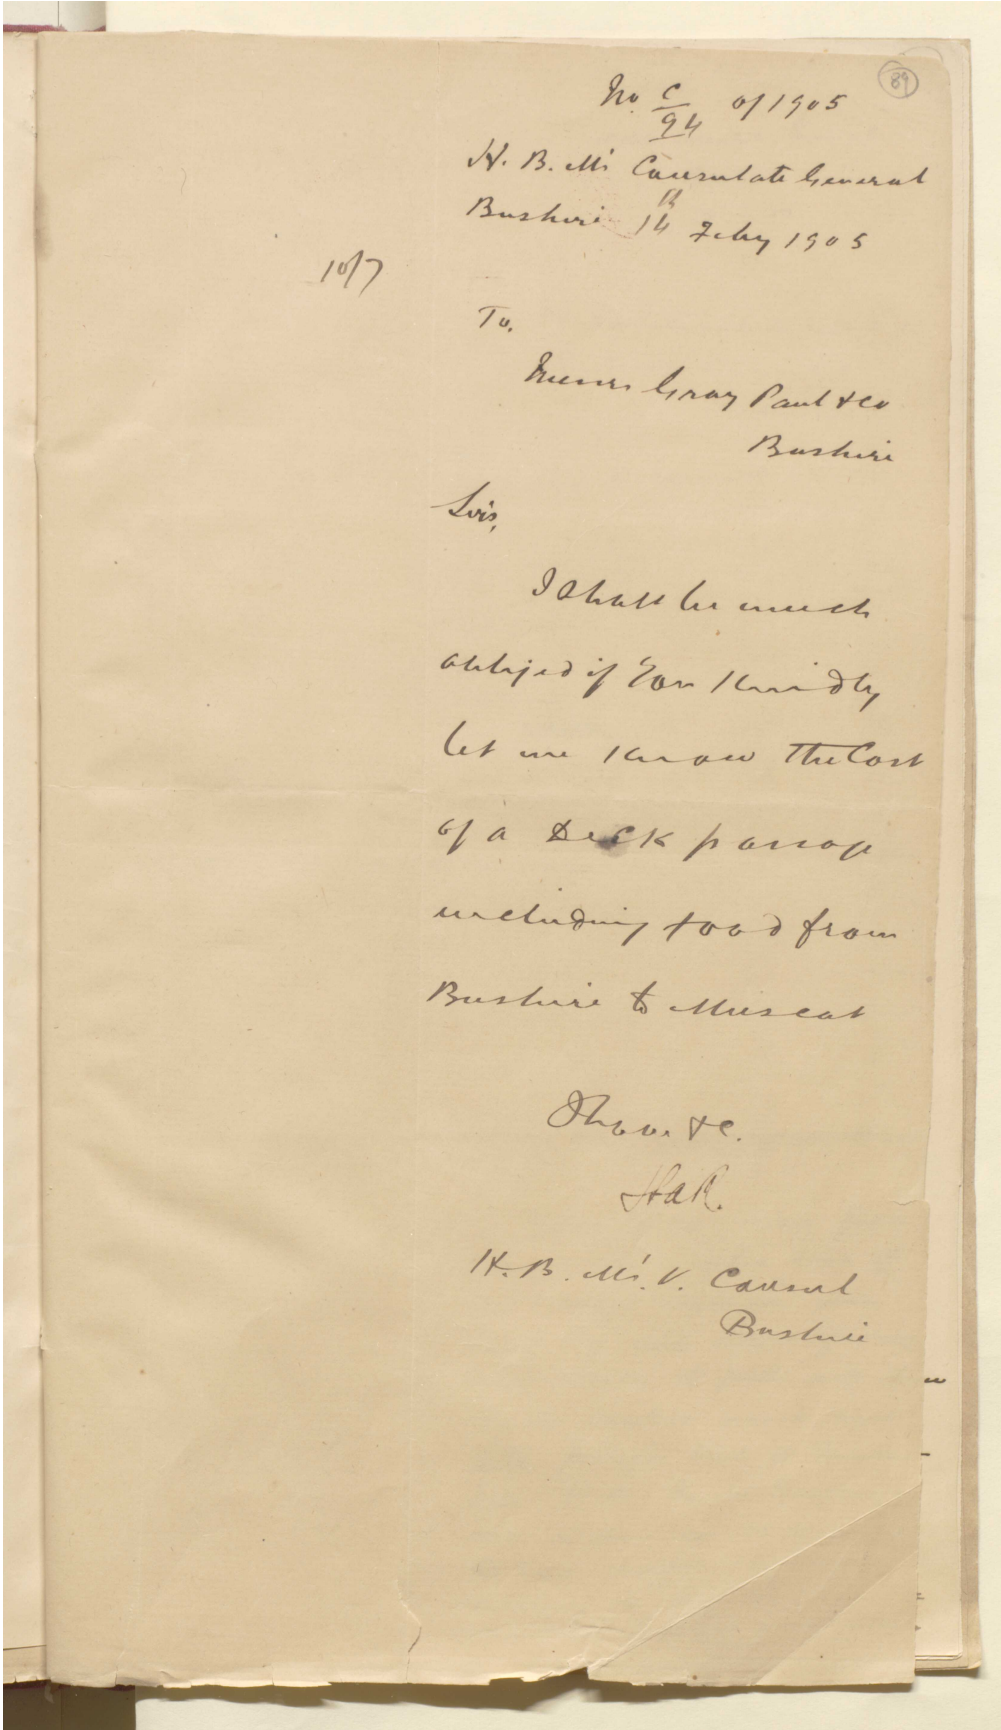 89
No. C/94 of 1905
H. B. M's Consulate General
Bushire 14th Feby 1905
10/7
To.
Messrs Gray Paul & Co
Bushire
Sirs,
I shall be much
obliged if you kindly
let me know the Cost
of a Deck passage
including food from
Bushire to Muscat
I have &c.
H. B. M's. V. Consul
Bushire